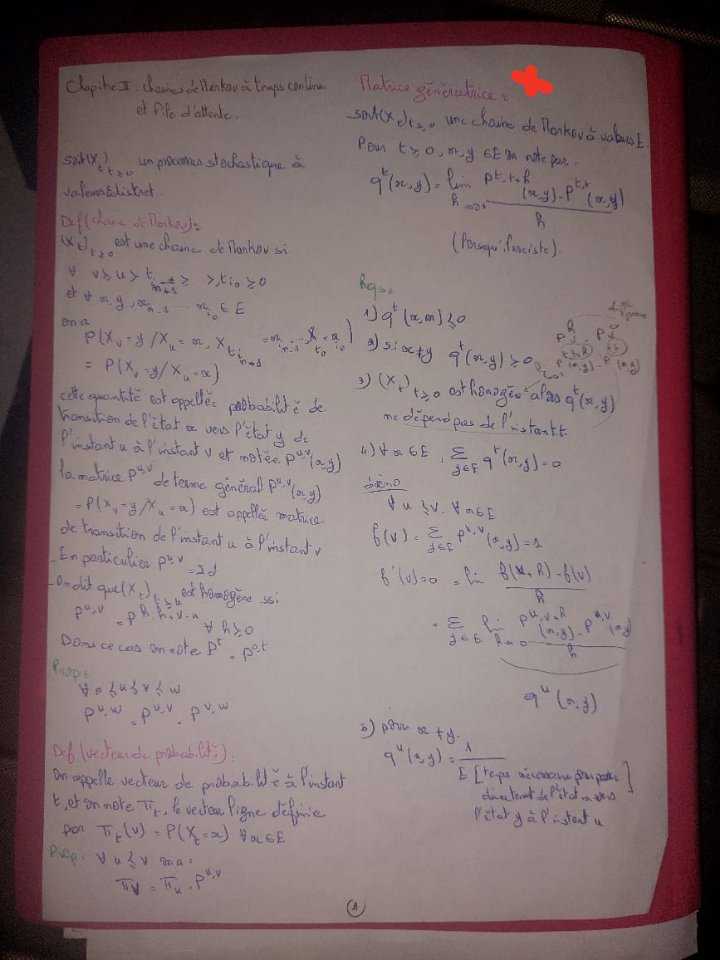 Chapitre II. chaines de Markov à temps continu
et file d'attente.
soit (X_t)_{t≥0} un processus stochastique à
valeurs E discret.
Def (chaine de Markov):
(X_t)_{t≥0} est une chaine de Markov si
∀ v ≥ u > t_{n-1} ≥ > t_{i0} ≥ 0
et ∀ x, y, x_{n-1} .... x_{i0} ∈ E
on a
P(X_v = y / X_u = x, X_{t_{n-1}} = x_{n-1}, ..., X_{t_{i0}} = x_{i0})
= P(X_v = y / X_u = x)
cette quantité est appellée probabilité de
transition de l'état x vers l'état y de
l'instant u à l'instant v et notée P^{u,v}(x,y)
la matrice P^{u,v} de terme général P^{u,v}(x,y)
= P(X_v = y / X_u = x) est appellée matrice
de transition de l'instant u à l'instant v
- En particulier P^{u,u} = Id
- On dit que (X_t)_{t≥0} est homogène ssi
P^{u,v} = P^h h = v-u ∀ h ≥ 0
Dans ce cas on note P^t = P^{0,t}
Prop:
∀ 0 ≤ u ≤ v ≤ w
P^{u,w} = P^{u,v} . P^{v,w}
Def (vecteur de probabilité):
On appelle vecteur de probabilité à l'instant
t, et on note π_t, le vecteur ligne définie
par π_t(v) = P(X_t = x) ∀ x ∈ E
Prop: ∀ u ≤ v on a:
π_v = π_u . P^{u,v}
Matrice génératrice:
soit (X_t)_{t≥0} une chaine de Markov à valeurs E.
Pour t ≥ 0, x, y ∈ E on note par.
q^t(x,y) = lim_{h→0+} (P^{t,t+h}(x,y) - P^{t,t}(x,y)) / h
(lorsqu'il existe).
Rqs:
1) q^t(x,x) ≤ 0
2) si x ≠ y q^t(x,y) ≥ 0
3) (X_t)_{t≥0} est homogène alors q^t(x,y)
ne dépend pas de l'instant t.
4) ∀ x ∈ E, Σ_{y∈E} q^t(x,y) = 0
démo
∀ u ≤ v. ∀ x ∈ E
f(v) = Σ_{y∈E} P^{u,v}(x,y) = 1
f'(v) = 0 = lim (f(v+h) - f(v)) / h
= Σ_{y∈E} lim_{h→0} (P^{u,v+h}(x,y) - P^{u,v}(x,y)) / h
q^u(x,y)
5) pour x ≠ y.
q^u(x,y) = 1 / E [temps nécessaire pour passer
directement de l'état x vers
l'état y à l'instant u]
1